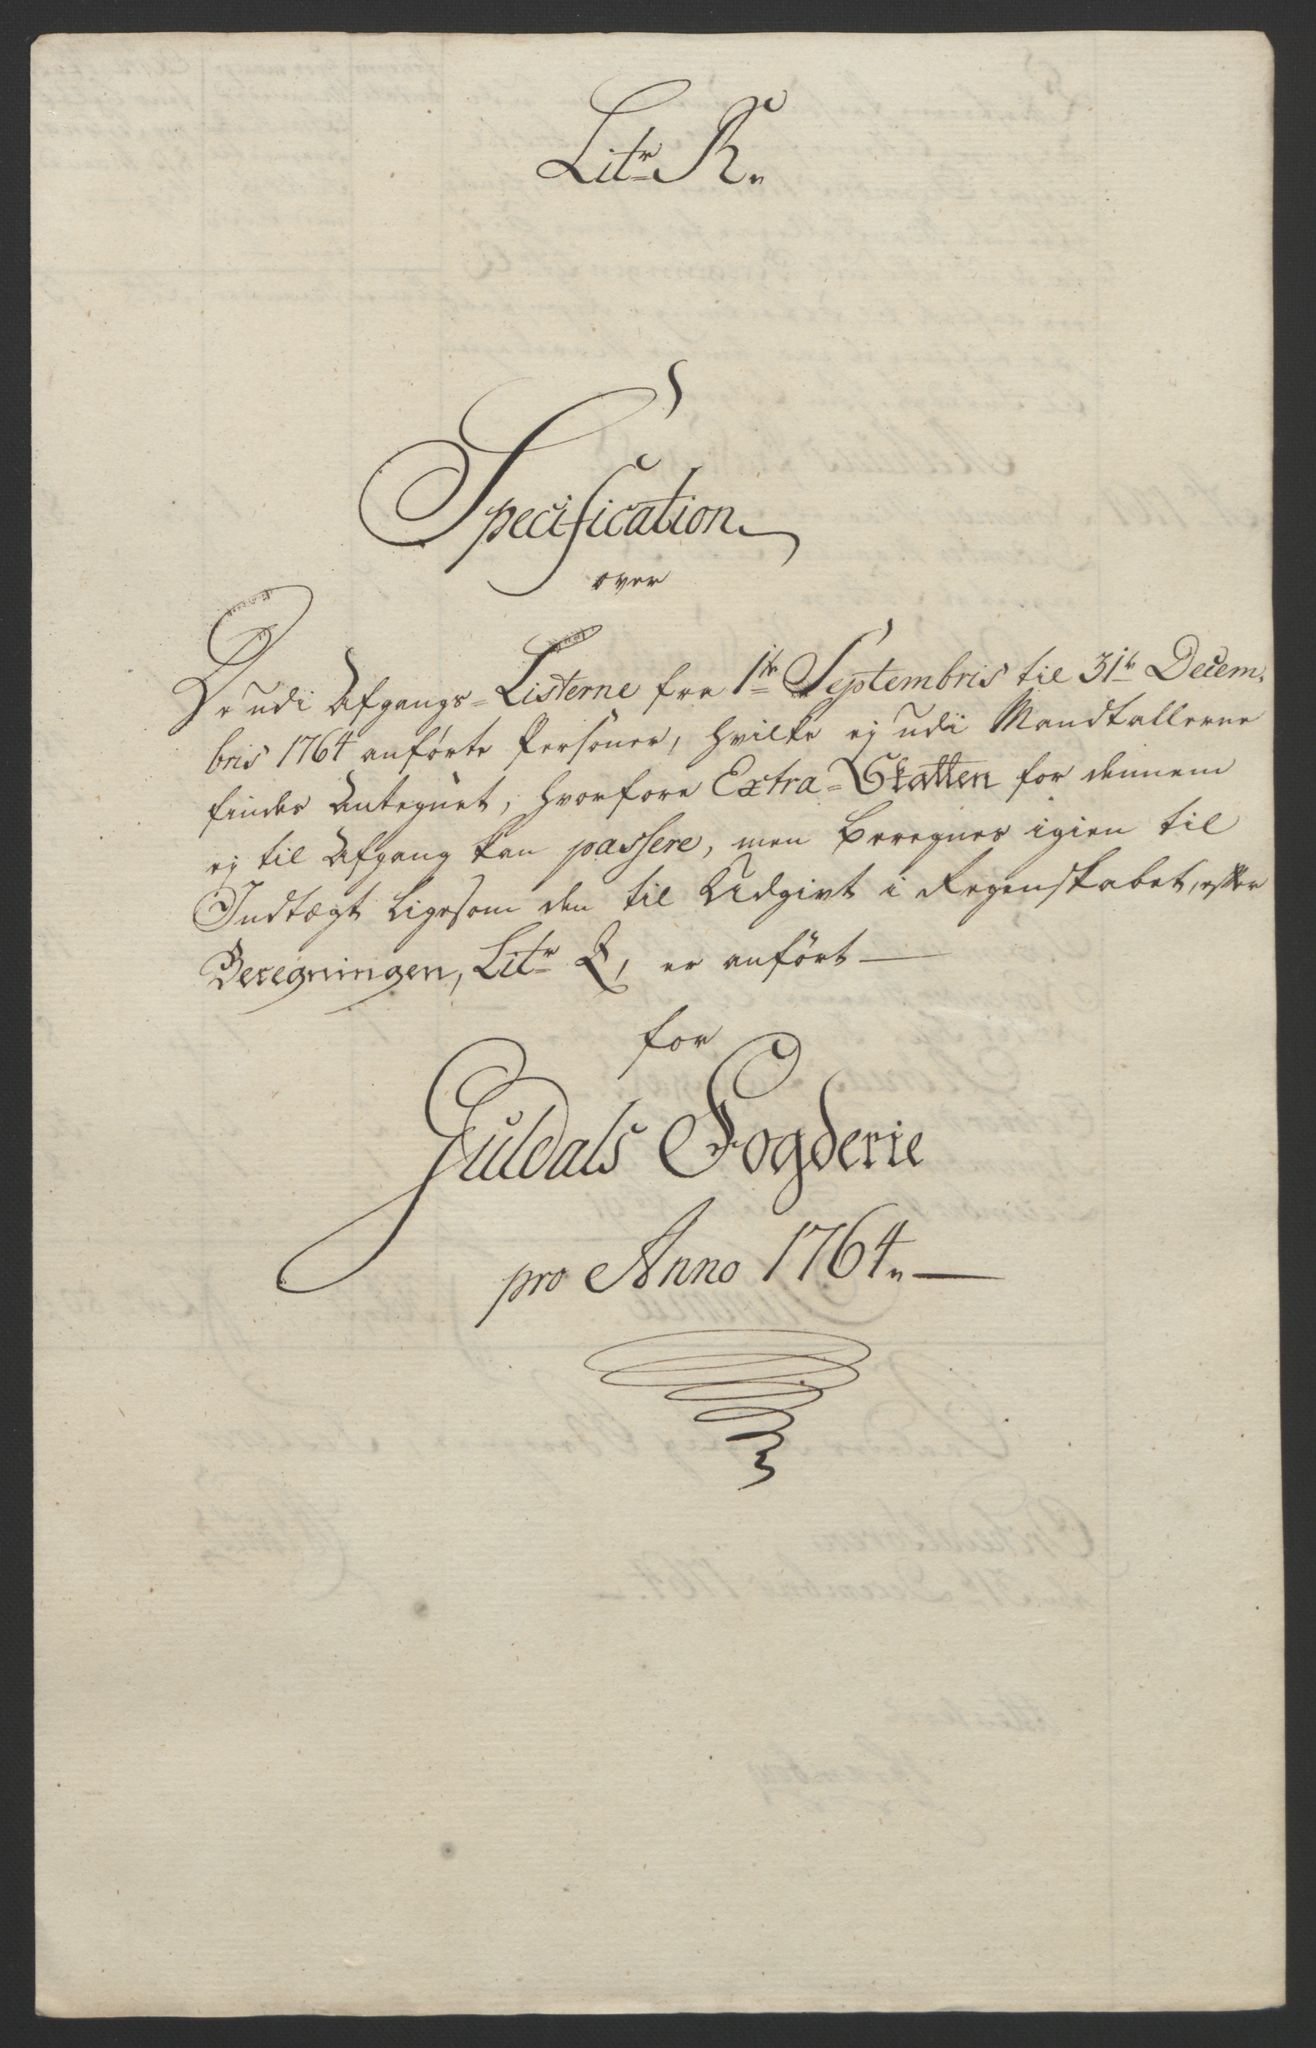 Litr R.
Specification
over
De udi Afgangs-Listerne fra 1te Septembris til 31te Decem,
bris 1764 anførte Personer, hvilke ej udi Mandtallerne
findes Antegnet, hvorfore Extra-Skatten for dennem
ej til Afgang kan passere, men beregnes igien til
Indtægt ligesom den til Udgivt i Regenskabet, efter
Beregningen, Litr Q, er anført —
for
Guldals Fogderie
pro Anno 1764. —